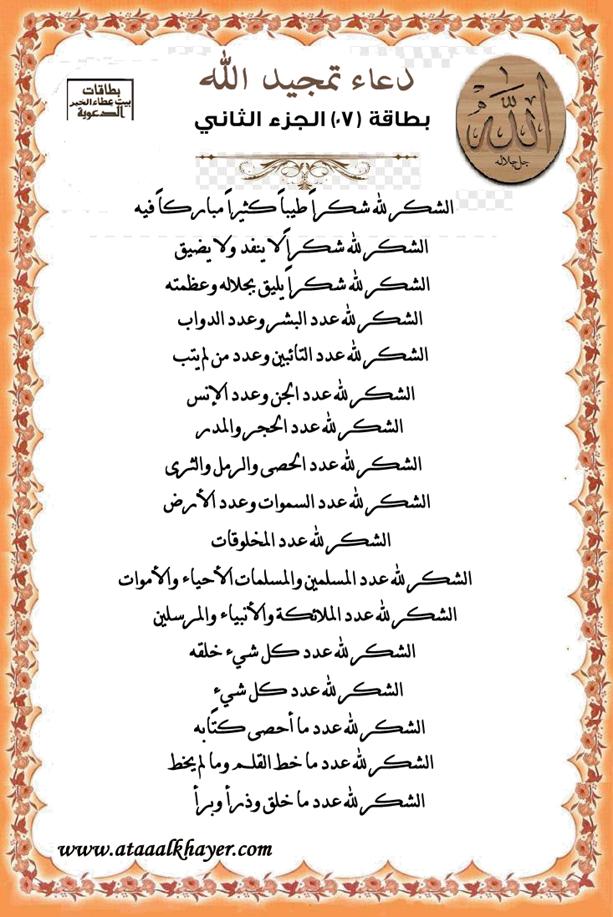 دعاء تمجيد الله
بطاقة (٠٧) الجزء الثاني
بطاقات
بيت عطاء الخير
الدعوية
الله
جل جلاله
الشكر لله شكراً طيباً كثيراً مباركاً فيه
الشكر لله شكراً لا ينفد ولا يضيق
الشكر لله شكراً يليق بجلاله وعظمته
الشكر لله عدد البشر وعدد الدواب
الشكر لله عدد التائبين وعدد من لم يتب
الشكر لله عدد الجن وعدد الإنس
الشكر لله عدد الحجر والمدر
الشكر لله عدد الحصى والرمل والثرى
الشكر لله عدد السموات وعدد الأرض
الشكر لله عدد المخلوقات
الشكر لله عدد المسلمين والمسلمات الأحياء والأموات
الشكر لله عدد الملائكة والأنبياء والمرسلين
الشكر لله عدد كل شيء خلقه
الشكر لله عدد كل شيء
الشكر لله عدد ما أحصى كتابه
الشكر لله عدد ما خط القلم وما لم يخط
الشكر لله عدد ما خلق وذرأ وبرأ
www.ataaalkhayer.com